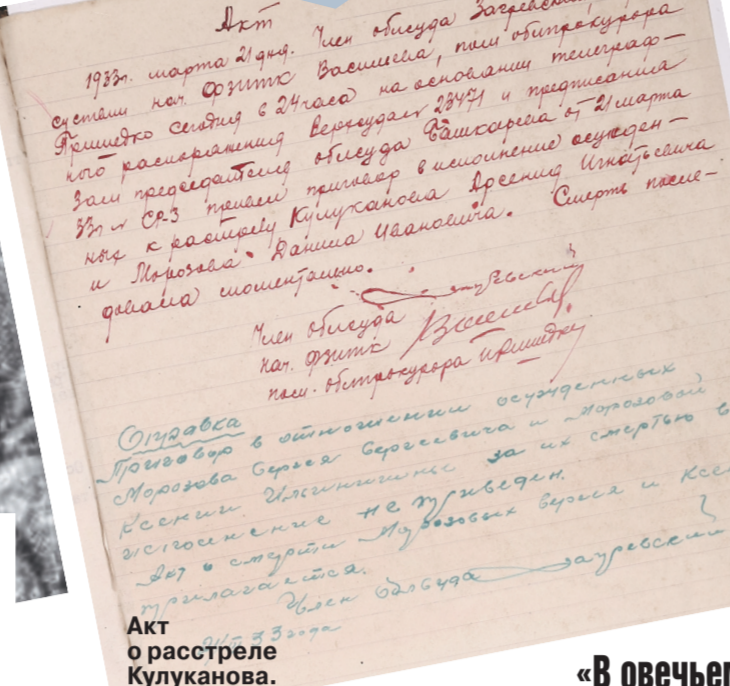 Акт
1933г. марта 21 дня. Член облсуда Загревский,
сутствии нач. ФЗИТК Васильева, пом облпрокурора
Пришедко сегодня в 24 часа на основании телеграф-
ного распоряжения Верхсуда 23471 и предписания
Зам председателя облсуда Башкарева от 21 марта
33г № СР-3 привел приговор в исполнение осужден-
ных к расстрелу Кулуканова Арсения Игнатьевича
и Морозова Данила Ивановича. Смерть после-
довала моментально.
Член облсуда Загревский
нач. ФЗИТК
пом. облпрокурора Пришедко
Справка
Приговор в отношении осужденных
Морозова Сергея Сергеевича и Морозовой
Ксении Ильиничны за их смертью в
исполнение не приведен.
Акт о смерти Морозовых Сергея и Ксе
прилагается.
Член Облсуда Загревский
33 года
Акт
о расстреле
Кулуканова.
«В овечьей